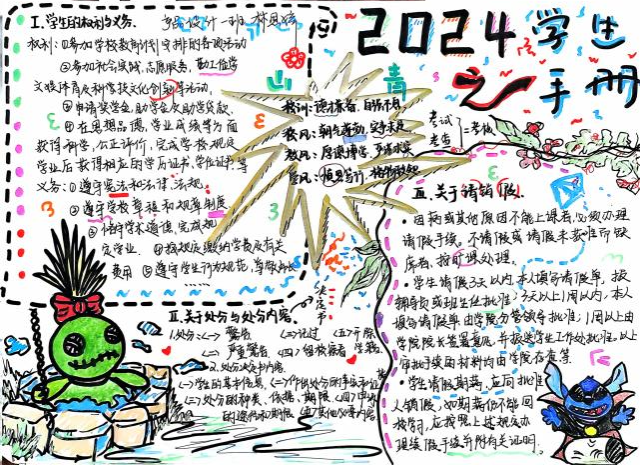 2024学生
手册
I.学生的权利与义务.
权利:①参加学校教育计划安排的各项活动
②参加社会实践、志愿服务、勤工俭学
文娱体育及科学技文化创新等活动
③申请奖学金、助学金及助学贷款
④在思想品德、学业成绩等方面
获得科学、公正评价,完成学校规定
学业后获得相应的学历证书、学位证书等
义务:①遵守宪法和法律、法规
②遵守学校章程和规章制度
③恪守学术道德,完成规
定学业
④按规定缴纳学费及有关
费用 ⑤遵守学生行为规范,尊敬师长
山
青
校训:
校风:
教风:
学风:
考试
考查
II.关于处分与处分内容.
1.处分:(一)警告 (三)记过 (五)开除
(二)严重警告 (四)留校察看 学籍
(一)学生的基本信息 (二)作出处分的事实和证
(三)处分的种类、依据、期限 (四)申诉
的途径和期限 (五)其他必要内容
III.关于请销假.
·因病或其他原因不能上课者,必须办理
请假手续。不请假或请假未获准而缺
席者,按旷课处理。
·学生请假3天以内,本人填写请假单,报
辅导员或班主任批准;3天以上1周以内,本人
填写请假单由学院分管领导批准;1周以上由
学院院长签署意见,并报送学生工作处批准。以上
审批手续因材料均由学院存查案
·学生请假期满,应向批准
人销假,如期满仍不能回
校的,应按照上述规定办
理续假手续并附有关证明.